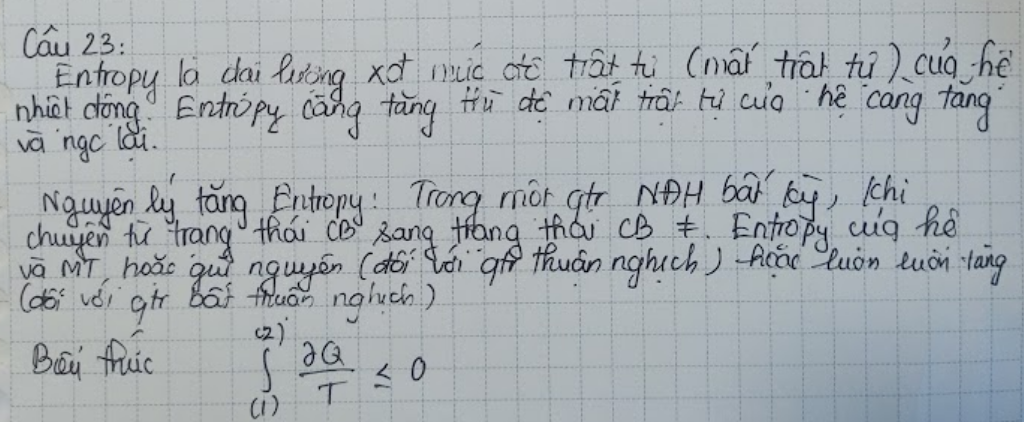 Câu 23:
Entropy là đại lượng xđ mức độ trật tự (mất trật tự) của hệ
nhiệt động. Entropy càng tăng thì độ mất trật tự của hệ càng tăng
và ngc lại.
Nguyên lý tăng Entropy: Trong một qtr NĐH bất kỳ, khi
chuyển từ trạng thái CB sang trạng thái CB ≠. Entropy của hệ
và MT hoặc giữ nguyên (đối với qtr thuận nghịch) hoặc luôn luôn tăng
(đối với qtr bất thuận nghịch)
Biểu thức ∫_(1)^(2) ∂Q/T ≤ 0